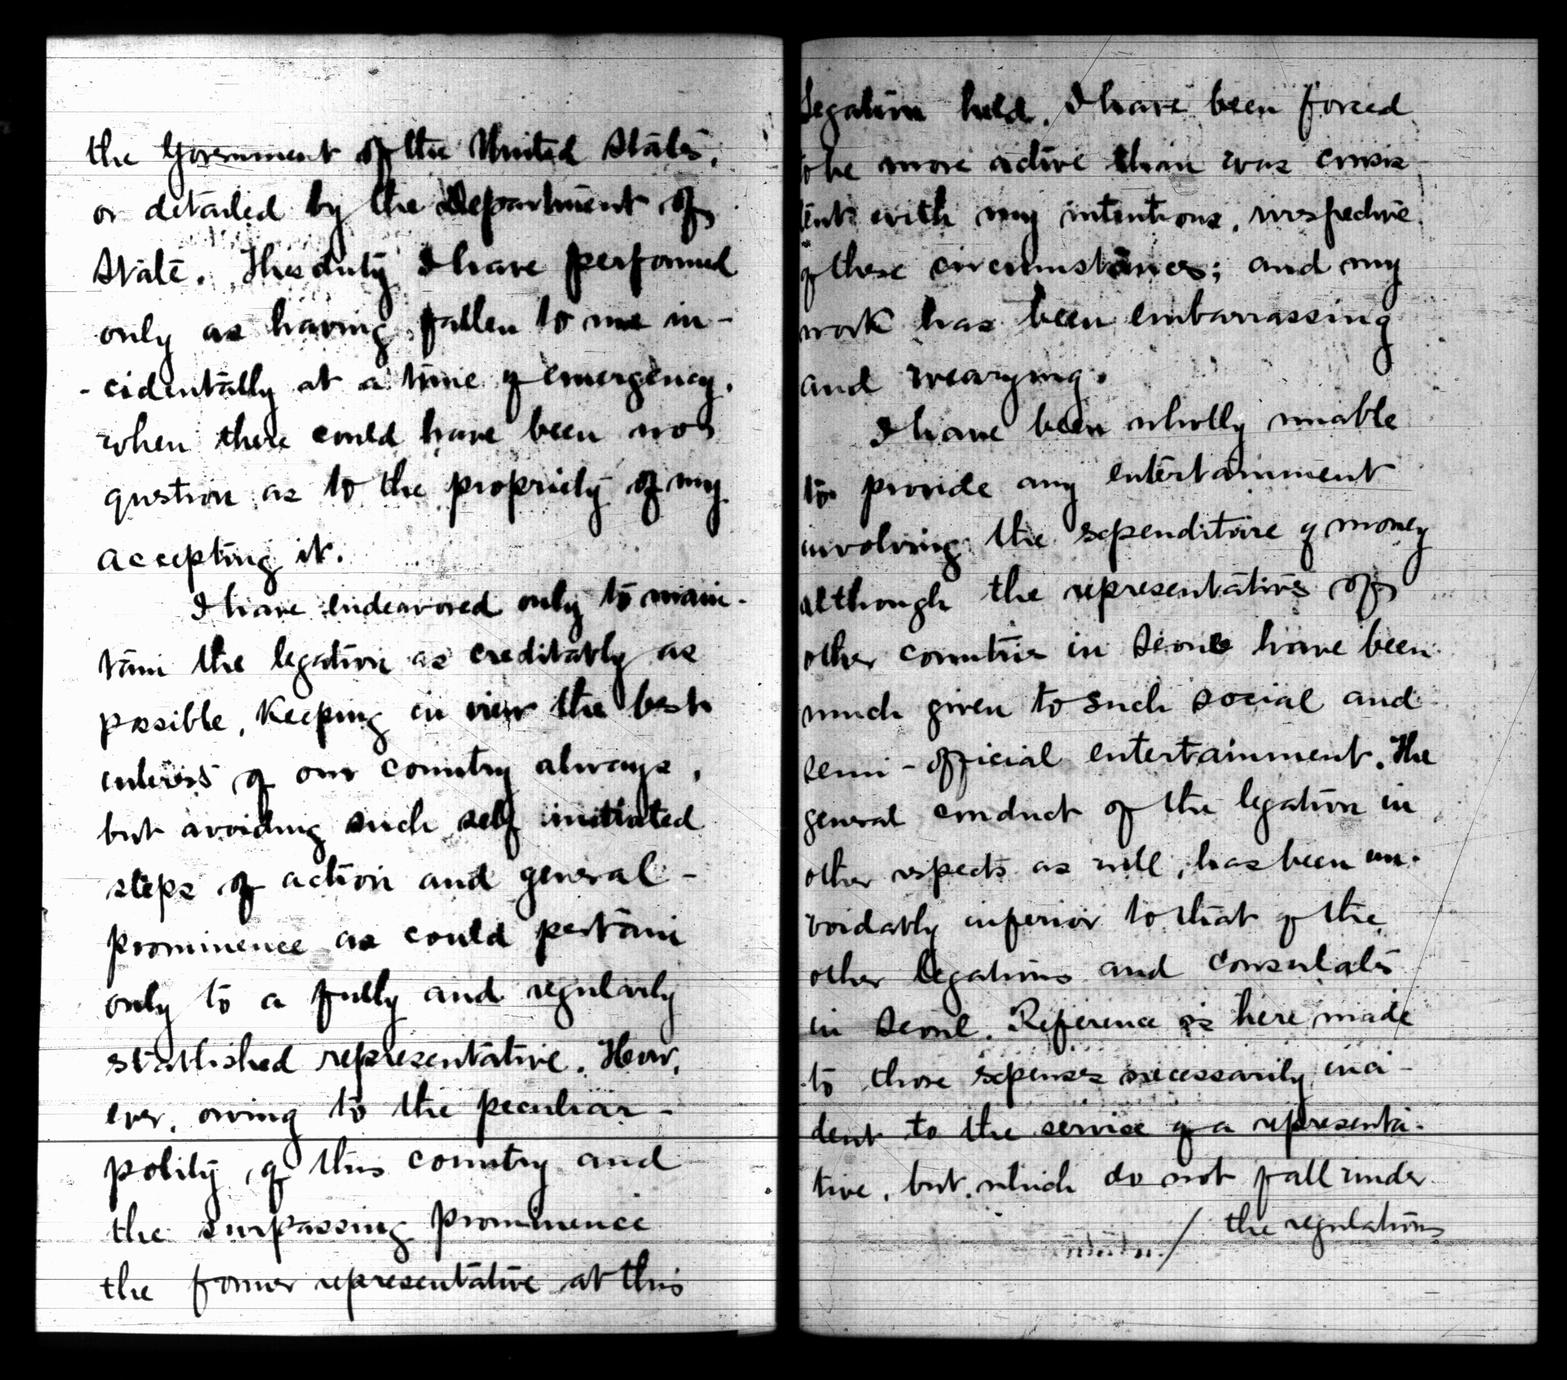 the Government of the United States,
or detailed by the Department of
State. This duty I have performed
only as having fallen to me in-
-cidentally at a time of emergency,
when there could have been no
question as to the propriety of my
accepting it.
I have endeavored only to main-
tain the legation as creditably as
possible, keeping in view the best
interests of our country always,
but avoiding such self initiated
steps of action and general-
prominence as could pertain
only to a fully and regularly
established representative. How,
ever, owing to the peculiar-
polity, of this country and
the surpassing prominence
the former representative at this
legation held, I have been forced
to be more active than was consis
tent with my intentions, irrespective
of these circumstances; and my
work has been embarrassing
and wearying.
I have been wholly unable
to provide any entertainment
involving the expenditure of money
although the representatives of
other countries in Seoul have been
much given to such social and
semi-official entertainment. The
general conduct of the legation in
other respects as well, has been una-
voidably inferior to that of the
other legations and consulates
in Seoul. Reference is here made
to those expenses necessarily inci-
dent to the service of a representa-
tive, but which do not fall under
/ the regulations